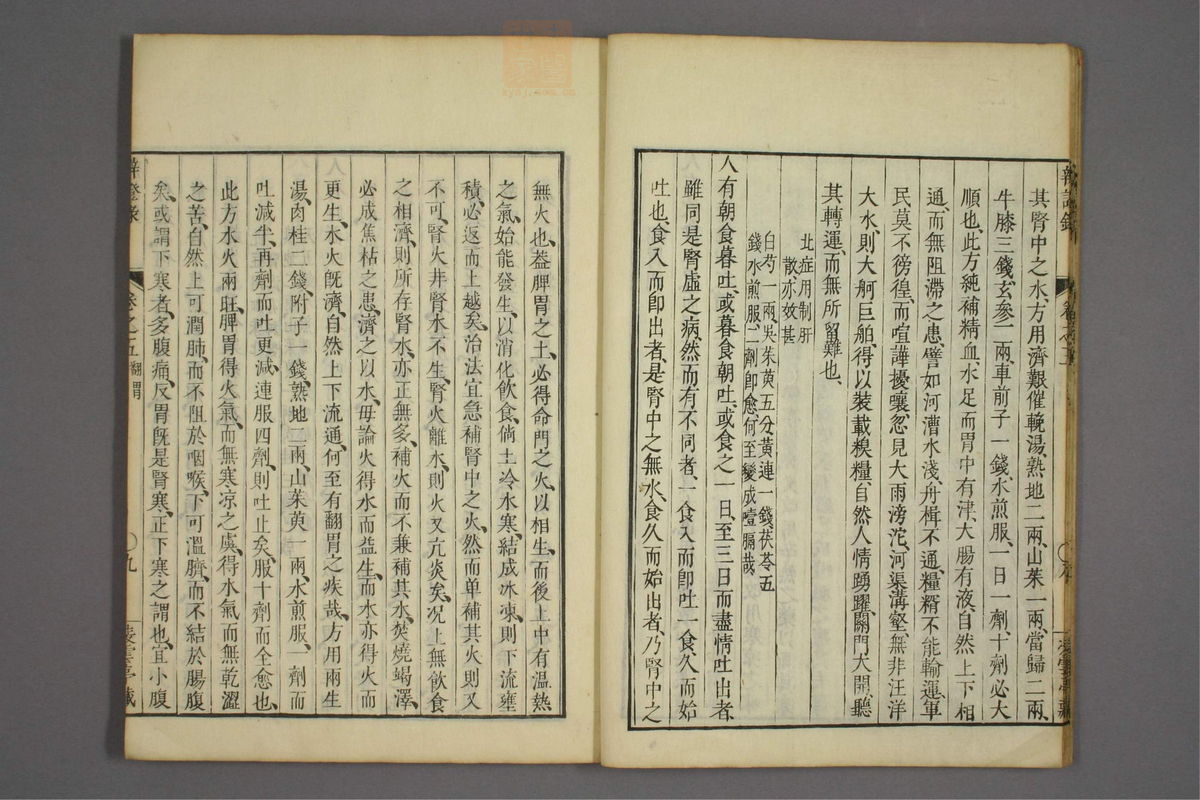 其腎中之水、方用濟艱催輓湯、熟地二兩、山茱一兩、當歸二兩、
牛膝三錢、玄參二兩、車前子一錢、水煎服、一日一劑、十劑必大
順也、此方純補精血、水足而胃中有津、大腸有液、自然上下相
通、而無阻滯之患、譬如河漕水淺、舟楫不通、糧糈不能輸運、軍
民莫不徬徨、而喧譁擾嚷、忽見大雨滂沱、河渠溝壑、無非汪洋
大水、則大舸巨舶、得以裝載糗糧、自然人情踴躍、關門大開、聽
其轉運、而無所留難也、
此症用制肝
散、亦妙甚
白芍一兩、吳茱萸五分、黃連一錢、茯苓五
錢、水煎服、二劑即愈、何至變成噎膈哉
人有朝食暮吐、或暮食朝吐、或食之一日、至三日而盡情吐出者、
雖同是腎虛之病、然而有不同者、一食入而即吐、一食久而始
吐也、食入而即出者、是腎中之無水、食久而始出者、乃腎中之
無火也、蓋脾胃之土、必得命門之火、以相生、而後土中有溫熱
之氣、始能發生、以消化飲食、倘土冷水寒、結成冰凍、則下流壅
積、必返而上越矣、治法宜急補腎中之火、然而单補其火、則又
不可、腎火非腎水不生、腎火離水、則火又亢炎矣、况上無飲食
之相濟、則所存腎水、亦正無多、補火而不兼補其水、焚燒竭澤、
必成焦枯之患、濟之以水、毋論火得水而益生、而水亦得火而
更生、水火既濟、自然上下流通、何至有翻胃之疾哉、方用兩生
湯、肉桂二錢、附子一錢、熟地二兩、山茱萸一兩、水煎服、一劑而
吐減半、再劑而吐更減、連服四劑、則吐止矣、服十劑而全愈也、
此方水火兩旺、脾胃得火氣、而無寒凉之虞、得水氣而無乾澀
之苦、自然上可潤肺、而不阻於咽喉、下可溫臍、而不結於腸腹
矣、或謂下寒者、多腹痛、反胃既是腎寒、正下寒之謂也、宜小腹
卷之五翻胃
九